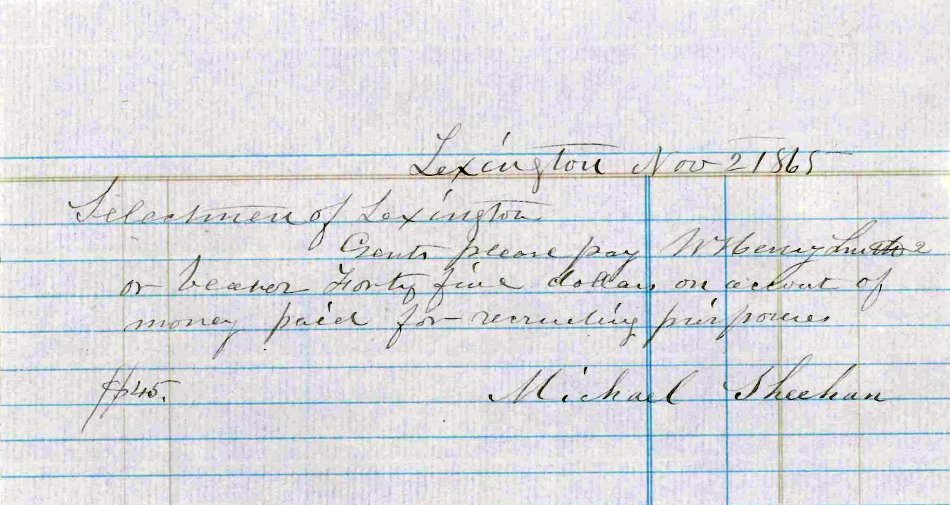 Lexington Nov 2 1865
Selectmen of Lexington
Gents please pay W Henry Smith 2
or bearer Forty five dollars on accout of
money paid for recruiting purposes
$45. Michael Sheehan